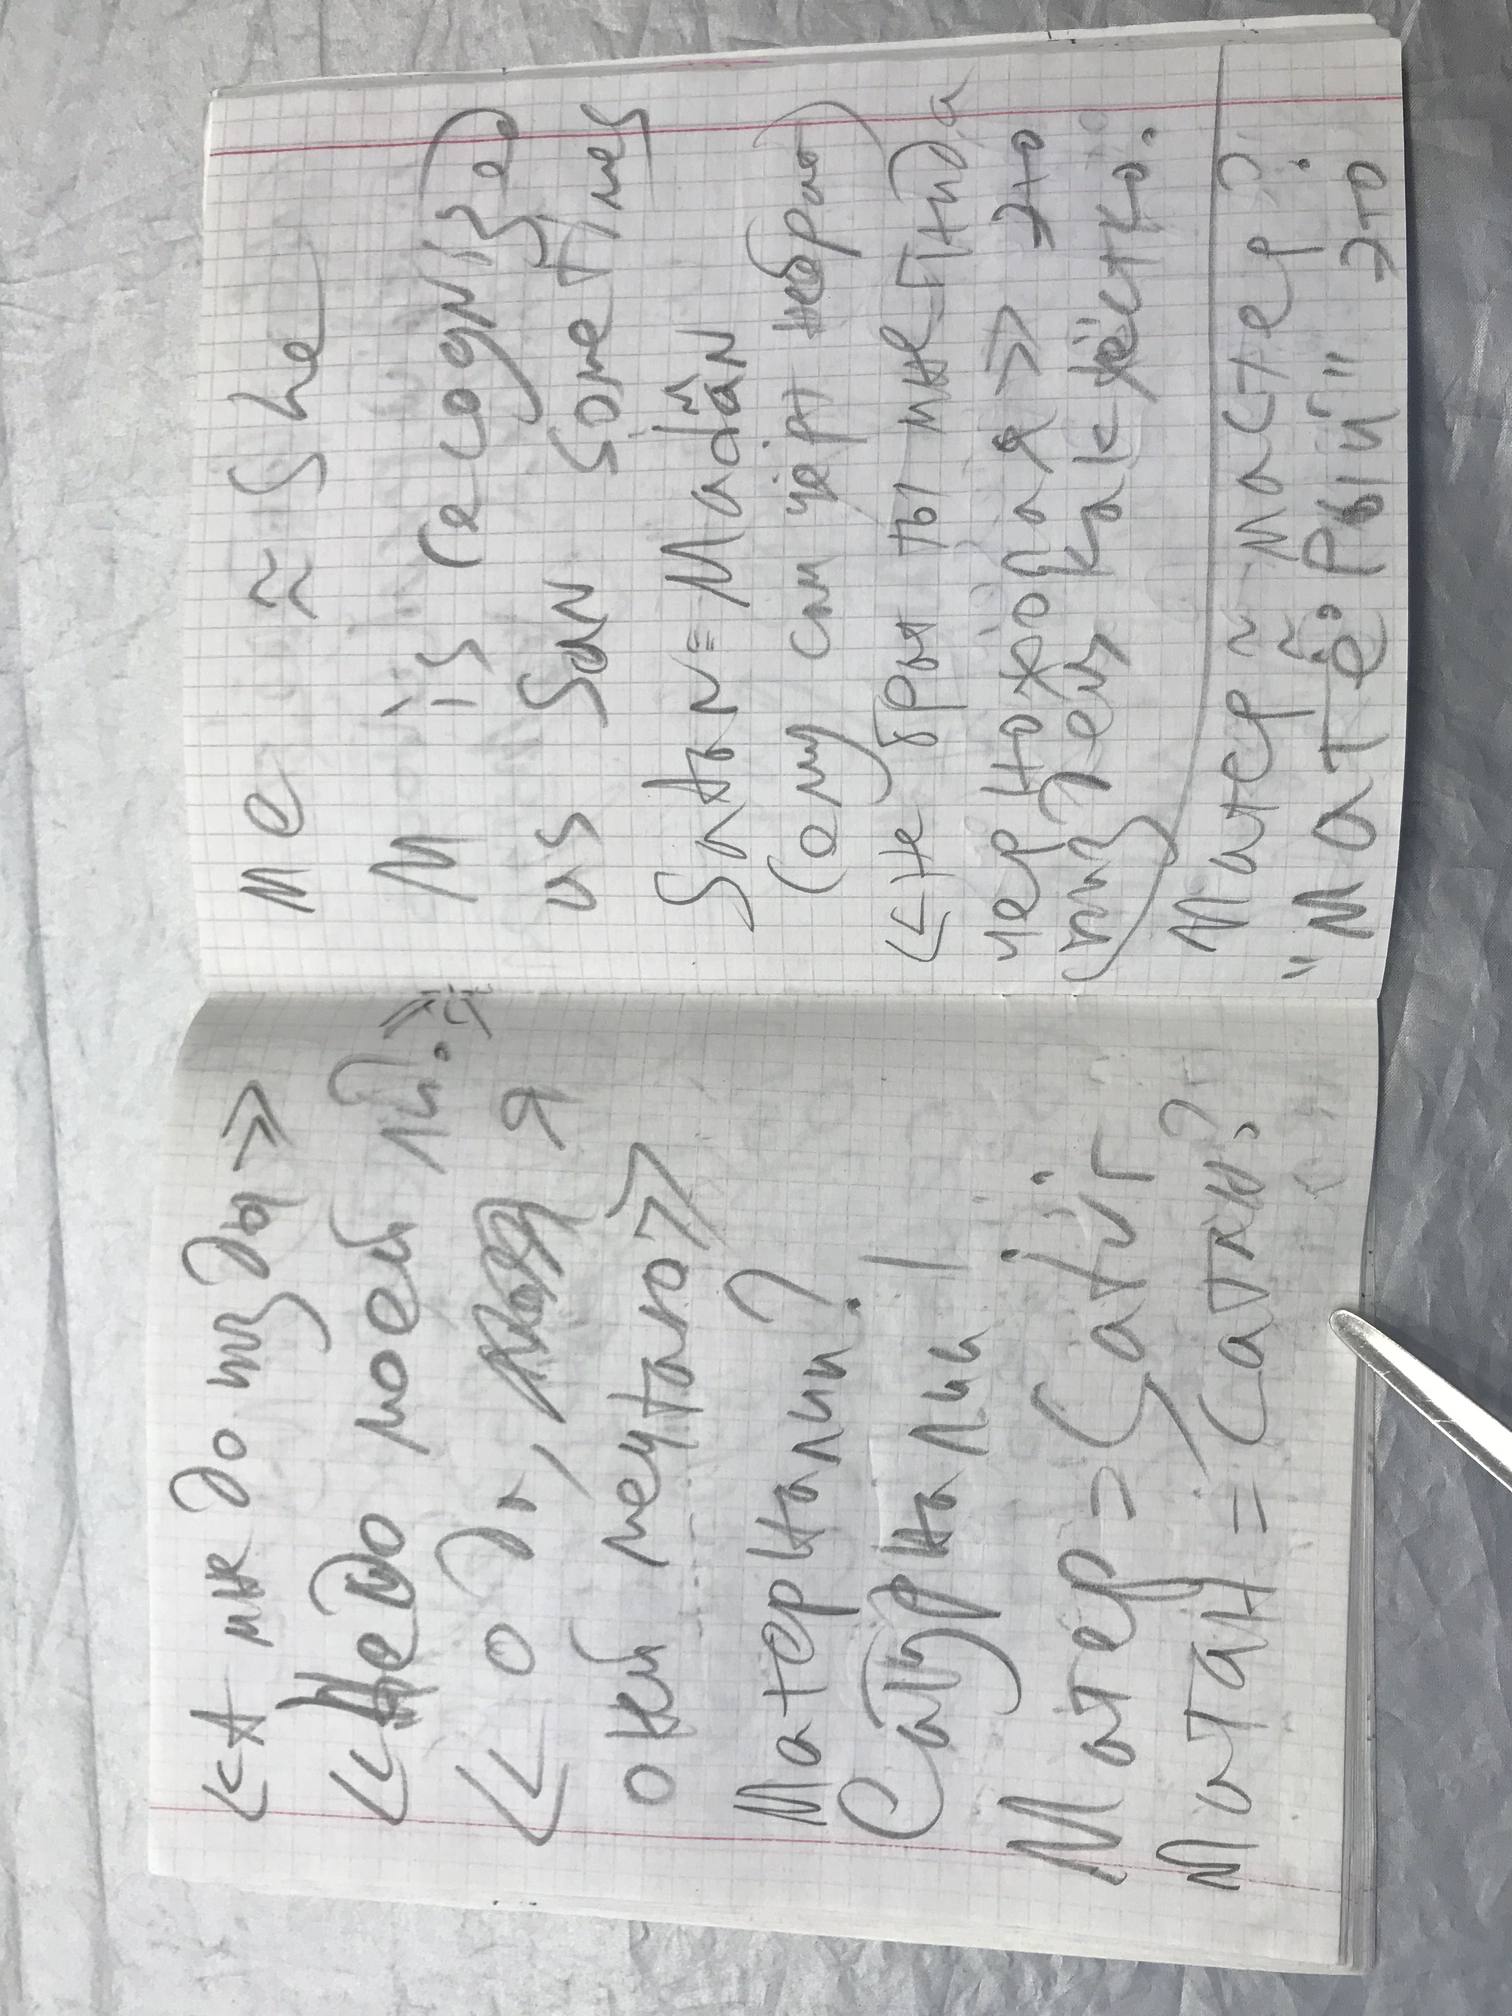 «А мне до пизды»
«Не до моей ли?»
«О да, я
окей мечтаю»
Матерналии?
Сатурналии!
Матер = Сатиг
Матан = Сатан?
Me ≈ She
M is recognize
as San sometimes
Satan = Madan
(ему сам чёрт не брат)
«Не брат ты мне гнида
черножопая» это
как жёстко.
Матер ≈ мастер?
"Матёрый" это